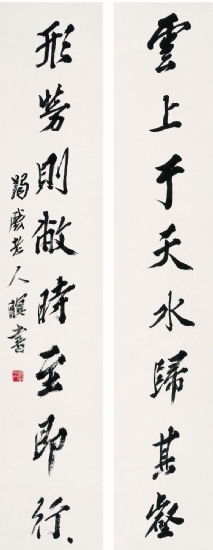 雲上于天水歸其壑
形勞則敝時至即行
蠲戲老人蠲書